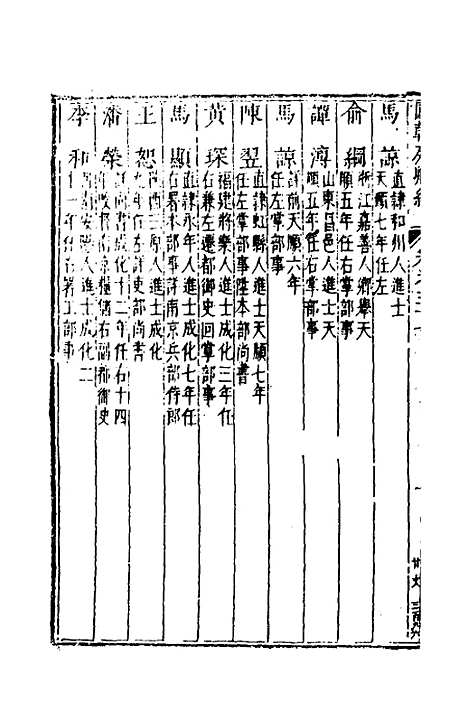 馬諒 直隸和州人進士
天順七年任左
俞綱 浙江嘉善人鄉舉天
順五年任右掌部事
譚溥 山東昌邑人進士天
順五年任右掌部事
馬諒 詳前天順六年
任左掌部事
陳翌 直隸虹縣人進士天順七年
任左掌部事陞本部尚書
黃琛 福建將樂人進士成化三年任
右兼左遷都御史回掌部事
馬顯 直隸永年人進士成化七年任
右署本部事詳南京兵部侍郎
王恕 陝西三原人進士成化
年任左詳吏部尚書
潘榮 詳尚書成化十二年任右十四
年改督南京糧儲右副都御史
李和 安人進士成化二
十一年任右署工部事